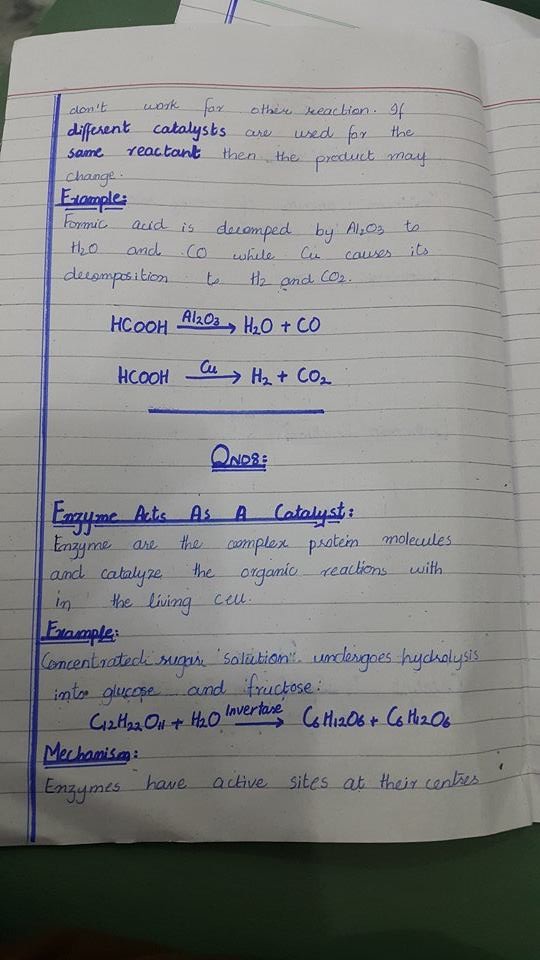 don't work for other reaction. If
different catalysts are used for the
same reactant then the product may
change.
Example:
Formic acid is decomped by Al₂O₃ to
H₂O and CO while Cu causes its
decomposition to H₂ and CO₂.
HCOOH Al₂O₃→ H₂O + CO
HCOOH Cu→ H₂ + CO₂
QNO8:
Enzyme Acts As A Catalyst:
Enzyme are the complex protein molecules
and catalyze the organic reactions with
in the living cell.
Example:
Concentrated sugar solution undergoes hydrolysis
into glucose and fructose.
C₁₂H₂₂O₁₁ + H₂O Invertase→ C₆H₁₂O₆ + C₆H₁₂O₆
Mechanism:
Enzymes have active sites at their centres